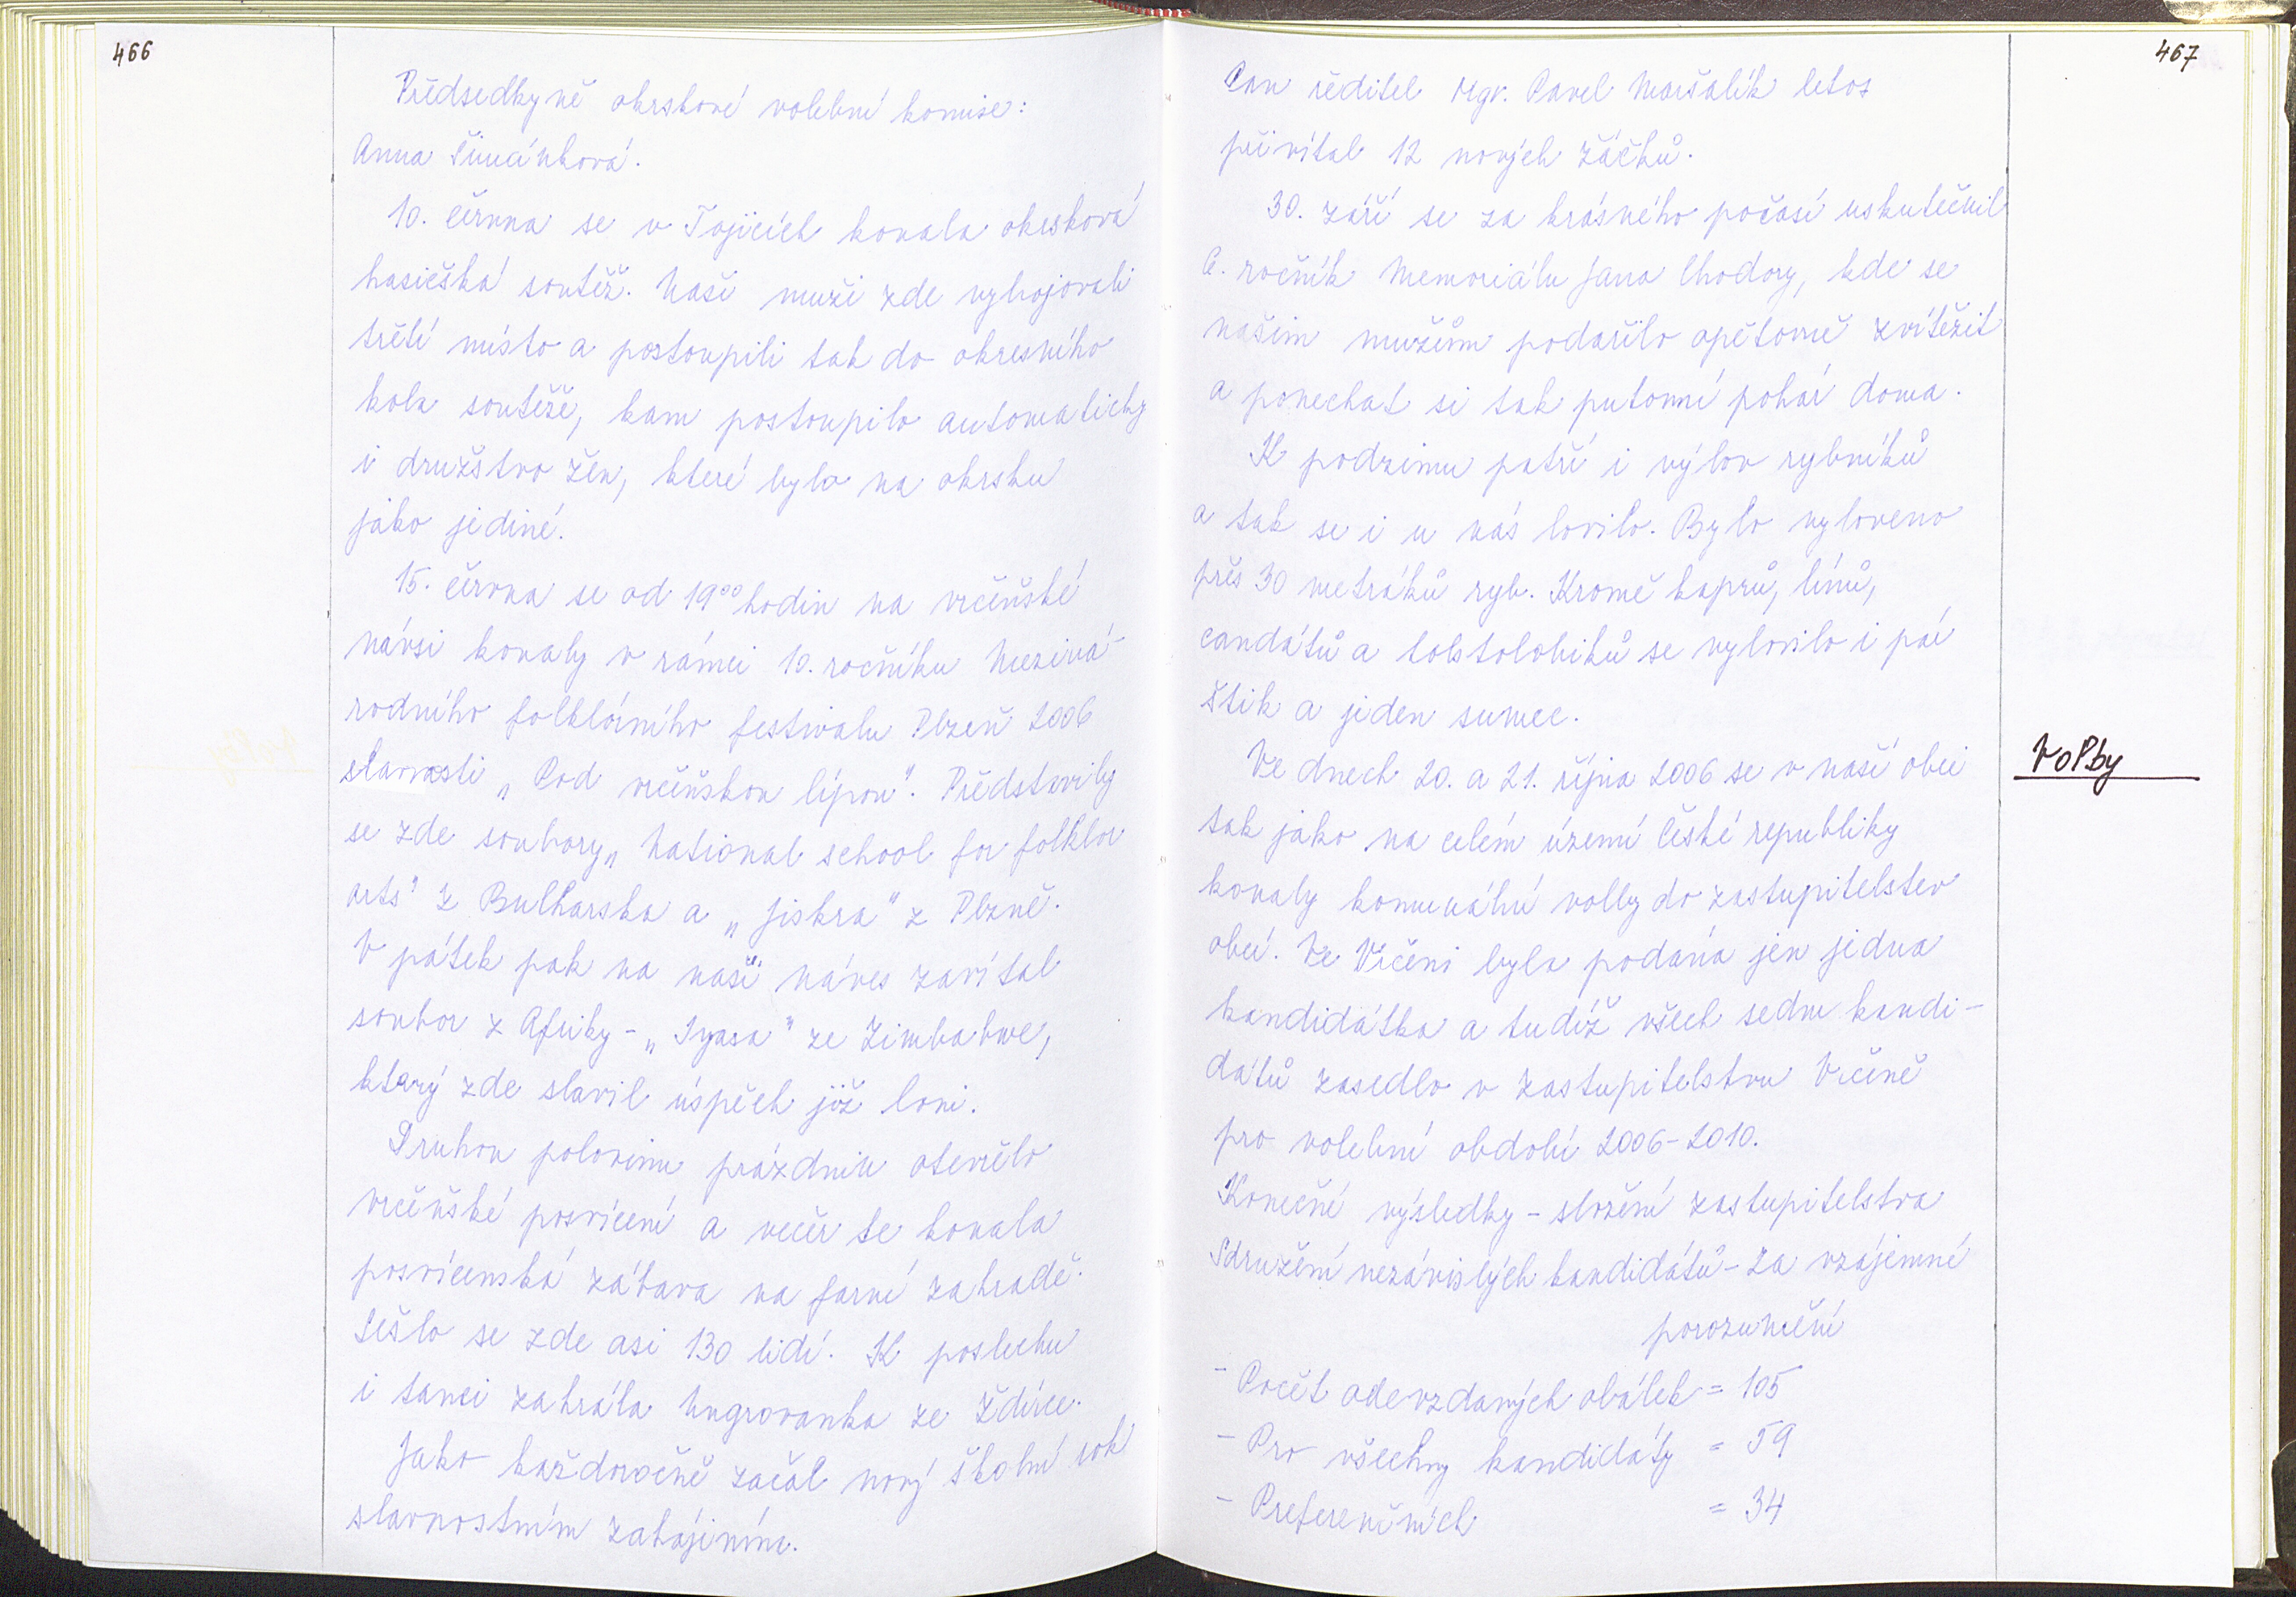 466
Předsedkyně okrskové volební komise:
Anna Šimánková.
10. června se v Tojicích konala okrsková
hasičská soutěž. Naši muži zde vybojovali
třetí místo a postoupili tak do okresního
kola soutěže, kam postoupilo automaticky
i družstvo žen, které bylo na okrsku
jako jediné.
15. června se od 19⁰⁰ hodin na vrčeňské
návsi konaly v rámci 10. ročníku Meziná-
rodního folklórního festivalu Plzeň 2006
slavnosti „Pod vrčeňskou lípou". Představily
se zde soubory „National school for folklor
arts" z Bulharska a „Jiskra" z Plzně.
V pátek pak na naši náves zavítal
soubor z Afriky - „Iyasa" ze Zimbabwe,
který zde slavil úspěch již loni.
Druhou polovinu prázdnin otevřelo
vrčeňské posvícení a večer se konala
posvícenská zábava na farní zahradě.
Sešlo se zde asi 130 lidí. K poslechu
i tanci zahrála Ungrovanka ze Ždírce.
Jako každoročně začal nový školní rok
slavnostním zahájením.
467
Pan ředitel Mgr. Pavel Maršalík letos
přivítal 12 nových žáčků.
30. září se za krásného počasí uskutečnil
6. ročník Memoriálu Jana Chodory, kde se
našim mužům podařilo opětovně zvítězit
a ponechat si tak putovní pohár doma.
K podzimu patří i výlov rybníků
a tak se i u nás lovilo. Bylo vyloveno
přes 30 metráků ryb. Kromě kaprů, línů,
candátů a tolstolobiků se vylovilo i pár
štik a jeden sumec.
Ve dnech 20. a 21. října 2006 se v naší obci
Volby
tak jako na celém území České republiky
konaly komunální volby do zastupitelstev
obcí. Ve Vrčeni byla podána jen jedna
kandidátka a tudíž všech sedm kandi-
dátů zasedlo v zastupitelstvu Vrčeně
pro volební období 2006-2010.
Konečné výsledky - složení zastupitelstva
Sdružení nezávislých kandidátů - Za vzájemné
porozumění
- Počet odevzdaných obálek = 105
- Pro všechny kandidáty = 59
- Preferenčních = 34